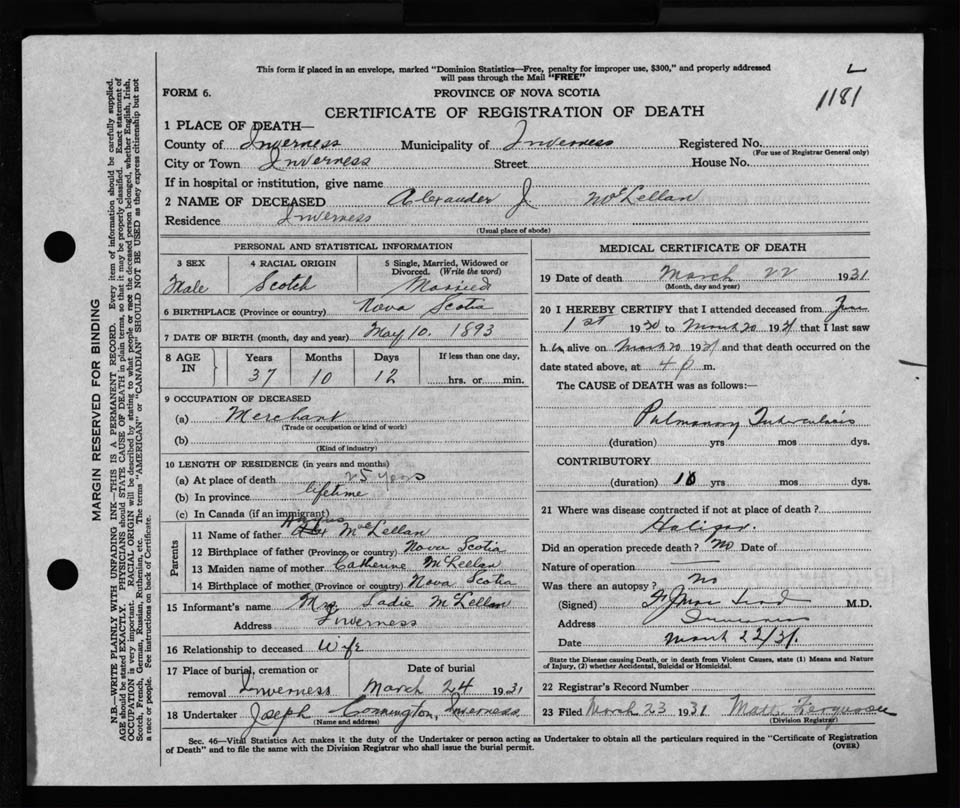 This form if placed in an envelope, marked "Dominion Statistics—Free, penalty for improper use, $300," and properly addressed
will pass through the Mail "FREE"
L
1181
FORM 6.
PROVINCE OF NOVA SCOTIA
CERTIFICATE OF REGISTRATION OF DEATH
1 PLACE OF DEATH—
County of Inverness Municipality of Inverness Registered No.
(For use of Registrar General only)
City or Town Inverness Street House No.
If in hospital or institution, give name
2 NAME OF DECEASED Alexander J. McLellan
Residence Inverness
(Usual place of abode)
PERSONAL AND STATISTICAL INFORMATION
3 SEX 4 RACIAL ORIGIN 5 Single, Married, Widowed or
Divorced. (Write the word)
Male Scotch Married
6 BIRTHPLACE (Province or country) Nova Scotia
7 DATE OF BIRTH (month, day and year) May 10. 1893
8 AGE IN Years Months Days If less than one day,
37 10 12 hrs. or min.
9 OCCUPATION OF DECEASED
(a) Merchant
(Trade or occupation or kind of work)
(b)
(Kind of industry)
10 LENGTH OF RESIDENCE (in years and months)
(a) At place of death 25 years
(b) In province lifetime
(c) In Canada (if an immigrant)
Parents
11 Name of father McLellan
12 Birthplace of father (Province or country) Nova Scotia
13 Maiden name of mother Catherine McLellan
14 Birthplace of mother (Province or country) Nova Scotia
15 Informant's name Mrs Sadie McLellan
Address Inverness
16 Relationship to deceased Wife
17 Place of burial, cremation or Date of burial
removal Inverness March 24 1931
18 Undertaker Joseph Connington, Inverness
(Name and address)
MEDICAL CERTIFICATE OF DEATH
19 Date of death March 22 1931
(Month, day and year)
20 I HEREBY CERTIFY that I attended deceased from
1st 1930 to March 20 1931 that I last saw
h alive on March 20 1931 and that death occurred on the
date stated above, at 4 p m.
The CAUSE of DEATH was as follows:—
Pulmonary Tuberculosis
(duration) yrs mos dys.
CONTRIBUTORY
(duration) 10 yrs mos dys.
21 Where was disease contracted if not at place of death?
Halifax.
Did an operation precede death? No Date of
Nature of operation
Was there an autopsy? No
(Signed) M.D.
Address Inverness
Date March 22/31.
State the Disease causing Death, or in death from Violent Causes, state (1) Means and Nature
of Injury, (2) whether Accidental, Suicidal or Homicidal.
22 Registrar's Record Number
23 Filed March 23 1931 Math. Ferguson
(Division Registrar)
Sec. 46—Vital Statistics Act makes it the duty of the Undertaker or person acting as Undertaker to obtain all the particulars required in the "Certificate of Registration
of Death" and to file the same with the Division Registrar who shall issue the burial permit.
(OVER)
MARGIN RESERVED FOR BINDING
N.B.—WRITE PLAINLY WITH UNFADING INK—THIS IS A PERMANENT RECORD. Every item of information should be carefully supplied.
AGE should be stated EXACTLY. PHYSICIANS should STATE CAUSE OF DEATH in plain terms, so that it may be properly classified. Exact statement of
OCCUPATION is very important. RACIAL ORIGIN will be described by stating to what people or race the deceased person belonged, whether English, Irish,
Scotch, French, German, Russian, Ruthenian, etc. The terms "AMERICAN" or "CANADIAN" SHOULD NOT BE USED as they express citizenship but not
a race or people. See instructions on back of Certificate.